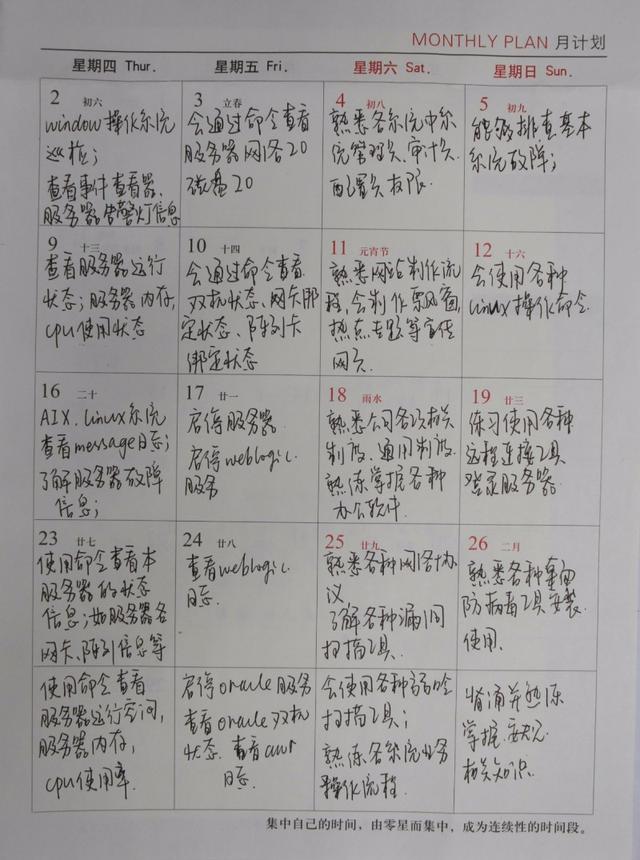 MONTHLY PLAN 月计划
星期四 Thur. 星期五 Fri. 星期六 Sat. 星期日 Sun.
2 初六
window操作系统
巡检;
查看事件查看器、
服务器告警灯信息
3 立春
会通过命令查看
服务器网络IO
磁盘IO
4 初八
熟悉各系统中系
统管理员、审计员、
配置员权限.
5 初九
能够排查基本
系统故障;
9 十三
查看服务器运行
状态;服务器内存,
cpu使用状态
10 十四
会通过命令查看
双机状态、网卡绑
定状态、阵列卡
绑定状态
11 元宵节
熟悉网站制作流
程,会制作飘窗,
热点专题等宣传
网页.
12 十六
会使用各种
linux操作命令.
16 二十
AIX、linux系统
查看message日志;
了解服务器故障
信息;
17 廿一
启停服务器
启停weblogic.
服务
18 雨水
熟悉公司各项相关
制度、通用制度.
熟练掌握各种
办公软件.
19 廿三
练习使用各种
远程连接工具
登录服务器.
23 廿七
使用命令查看本
服务器的状态
信息;如服务器各
网卡、阵列信息等
24 廿八
查看weblogic.
日志.
25 廿九
熟悉各种网络协
议
了解各种漏洞
扫描工具.
26 二月
熟悉各种
防病毒工具安装.
使用.
使用命令查看
服务器运行空间,
服务器内存,
cpu使用率.
启停oracle服务
查看oracle双机
状态、查看awr
日志.
会使用各种弱口令
扫描工具;
熟练各系统业务
操作流程.
背诵并熟练
掌握
相关知识.
集中自己的时间,由零星而集中,成为连续性的时间段。